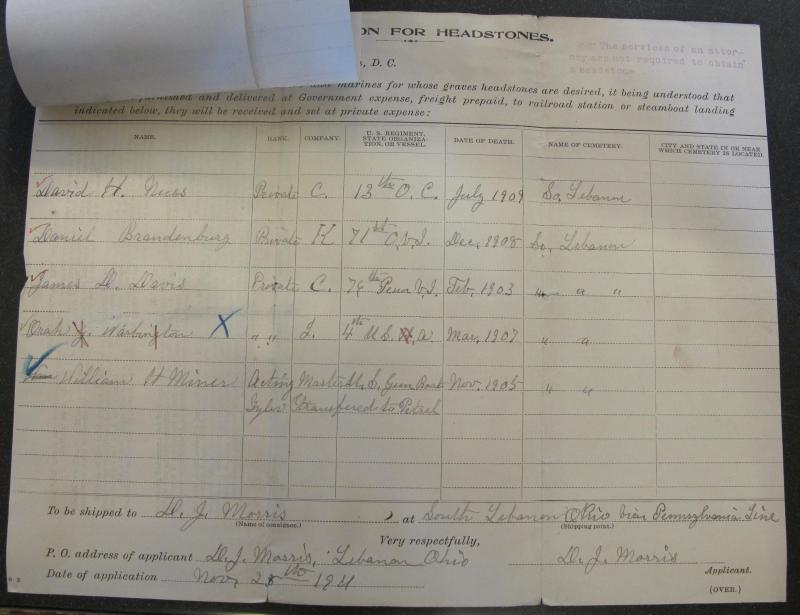 ON FOR HEADSTONES.
The services of an attor-
ney are not required to obtain
a headstone.
, D. C.
and marines for whose graves headstones are desired, it being understood that
furnished and delivered at Government expense, freight prepaid, to railroad station or steamboat landing
indicated below, they will be received and set at private expense:
NAME. RANK. COMPANY. U. S. REGIMENT, STATE ORGANIZA-TION, OR VESSEL. DATE OF DEATH. NAME OF CEMETERY. CITY AND STATE IN OR NEAR WHICH CEMETERY IS LOCATED.
David H. Private C. 13th O. C. July 1909 So. Lebanon
Daniel Brandenburg Private K 71st O.V.I. Dec. 1908 So. Lebanon
James D. Davis Private C. Penn V.I. Feb. 1903 " " "
Washington X " " I. 4th U.S. A. Mar. 1907 " "
William H Miner Acting Master U.S. Gun Boat Nov. 1905 " "
Tyler Transfered to
To be shipped to D. J. Morris, at South Lebanon Ohio via Pennsylvania Line
(Name of consignee.) (Shipping point.)
Very respectfully,
P. O. address of applicant D. J. Morris, Lebanon Ohio D. J. Morris
Applicant.
Date of application Nov. 1911
(OVER.)